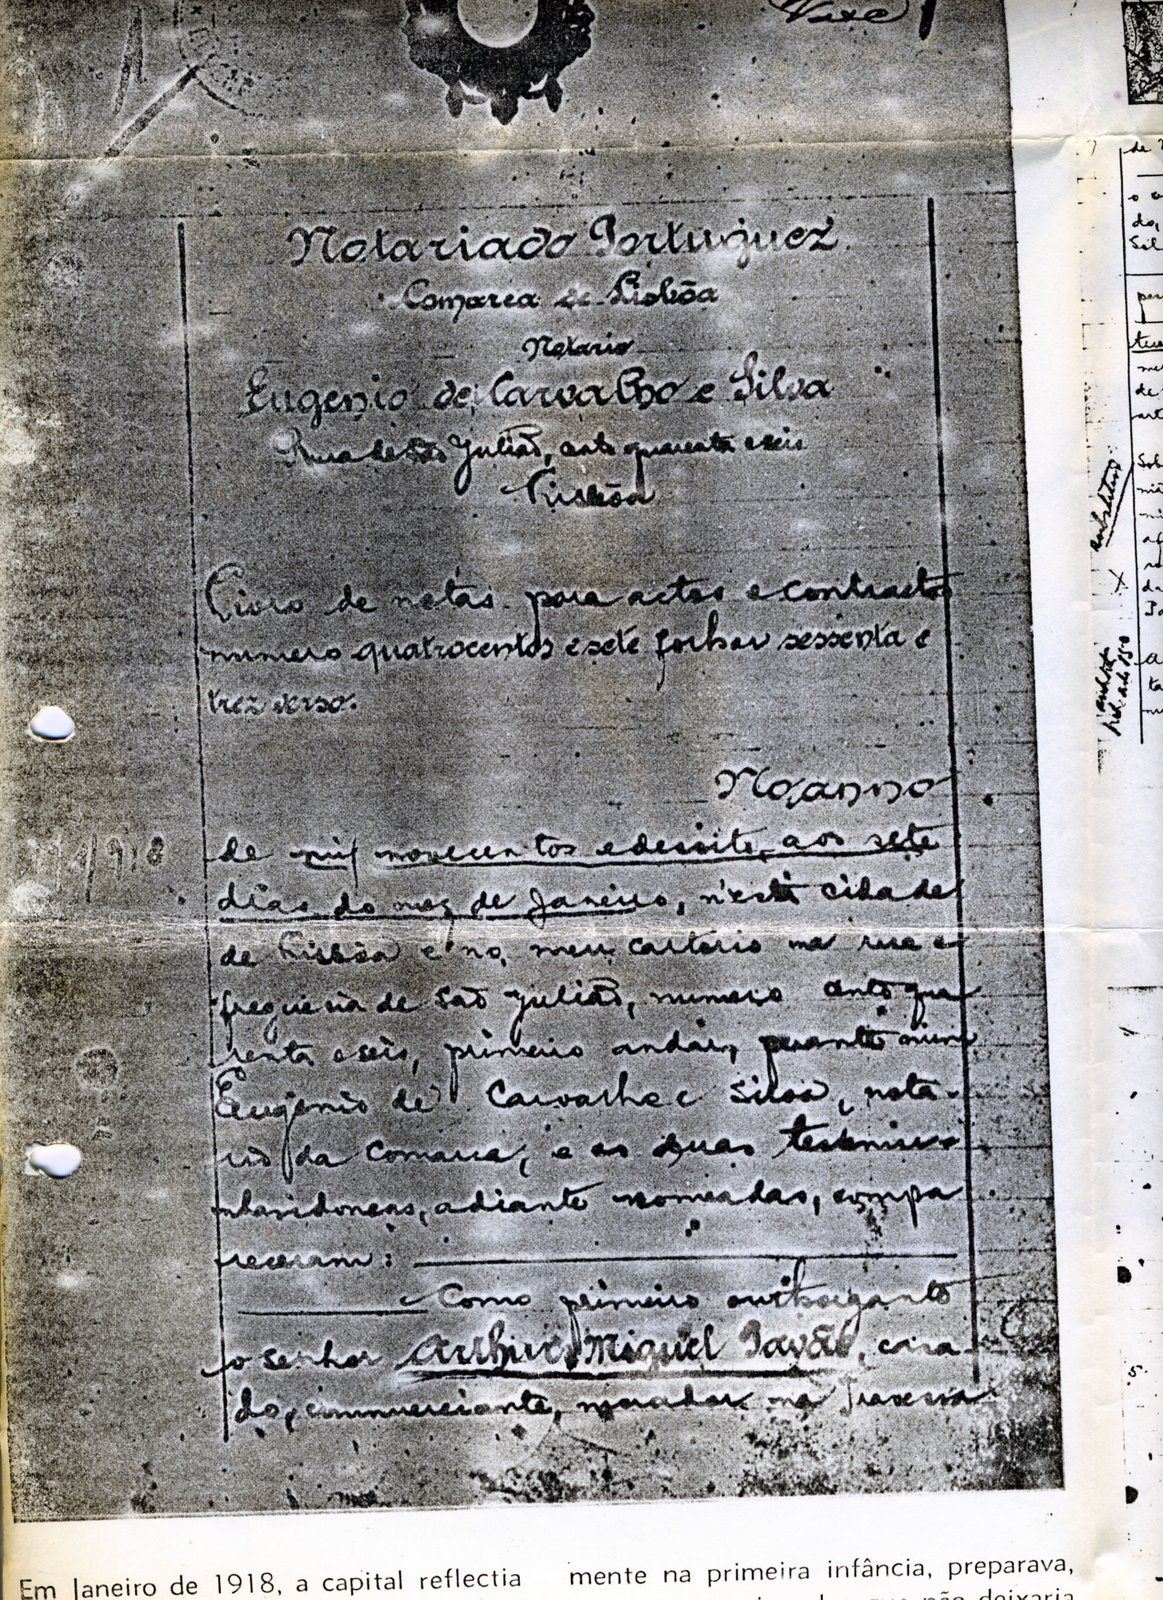 Notariado Portuguez
Comarca de Lisbôa
Notario
Eugenio de Carvalho e Silva
Rua de São Julião, cento quarenta e seis
Lisbôa
Livro de notas para actos e contractos
numero quatrocentos e sete folhas sessenta e
trez verso.
No anno
de mil novecentos e desoito, aos sete
dias do mez de Janeiro, n'esta cidade
de Lisbôa e no meu cartorio na rua e
freguezia de São Julião, numero cento qua
renta e seis, primeiro andar, perante mim
Eugenio de Carvalho e Silva, nota-
rio da comarca, e as duas testemu
nhas idoneas, adiante nomeadas, compa
receram:
Como primeiro outhorgante
o senhor Arthur Miguel Pavão, casa
do, commerciante, morador na Travessa
1918
Em Janeiro de 1918, a capital reflectia
mente na primeira infância, preparava,
que não deixaria